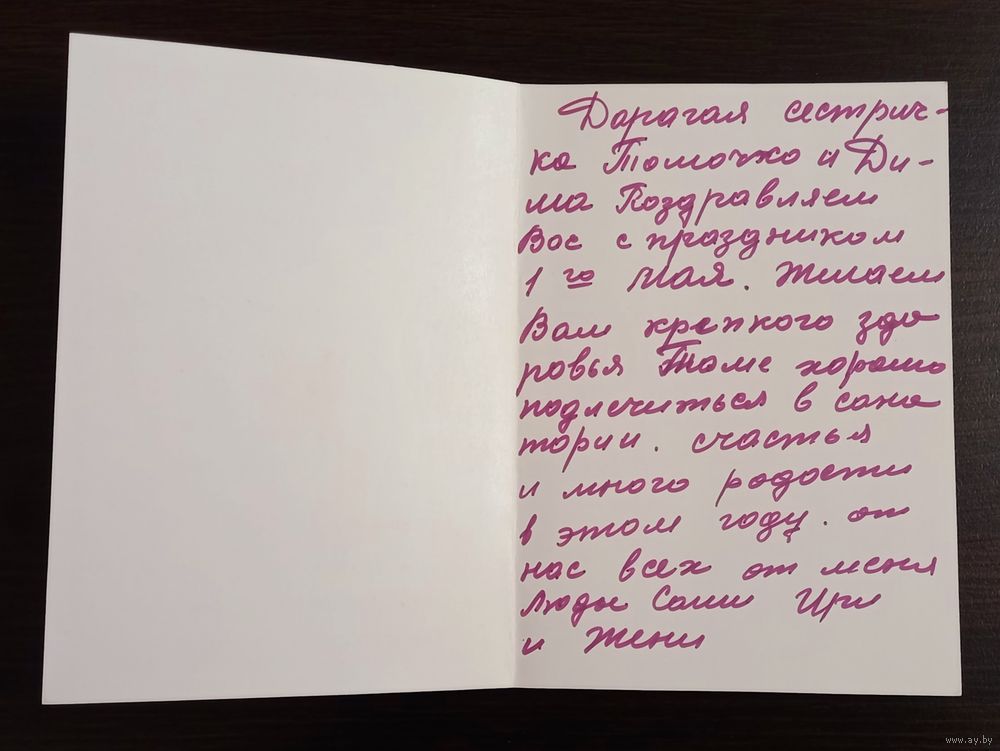 Дарагая сестрич-
ка Томочка и Ди-
ма Поздравляем
Вас с праздником
1го мая. Желаем
Вам крепкого здо
ровья Томе хорошо
подлечиться в сана
тории. счастья
и много радости
в этом году. от
нас всех от меня
Люды Саши Иры
и Жени
www.ay.by